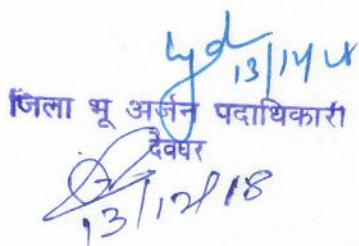 13/12/18
जिला भू अर्जन पदाधिकारी
देवघर
13/12/18